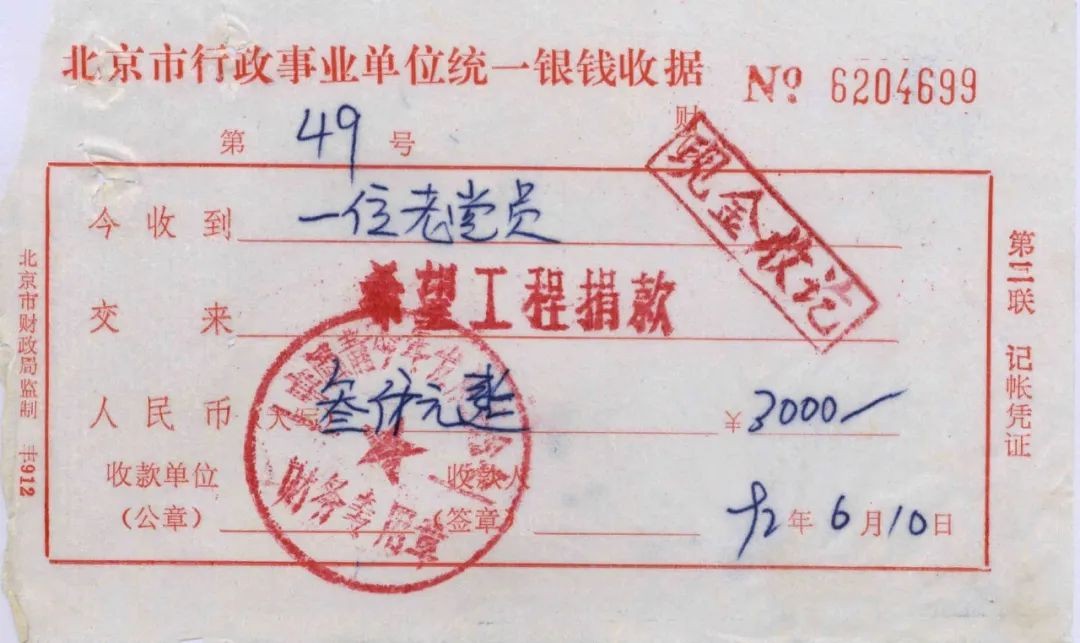 北京市行政事业单位统一银钱收据 Nº 6204699
财
第 49 号
现金收讫
今收到 一位老党员
交来 希望工程捐款
人民币 (大写) 叁仟元整 ¥3000—
收款单位 收款人
(公章) (签章) 92年6月10日
财务专用章
第三联 记帐凭证
北京市财政局监制 912